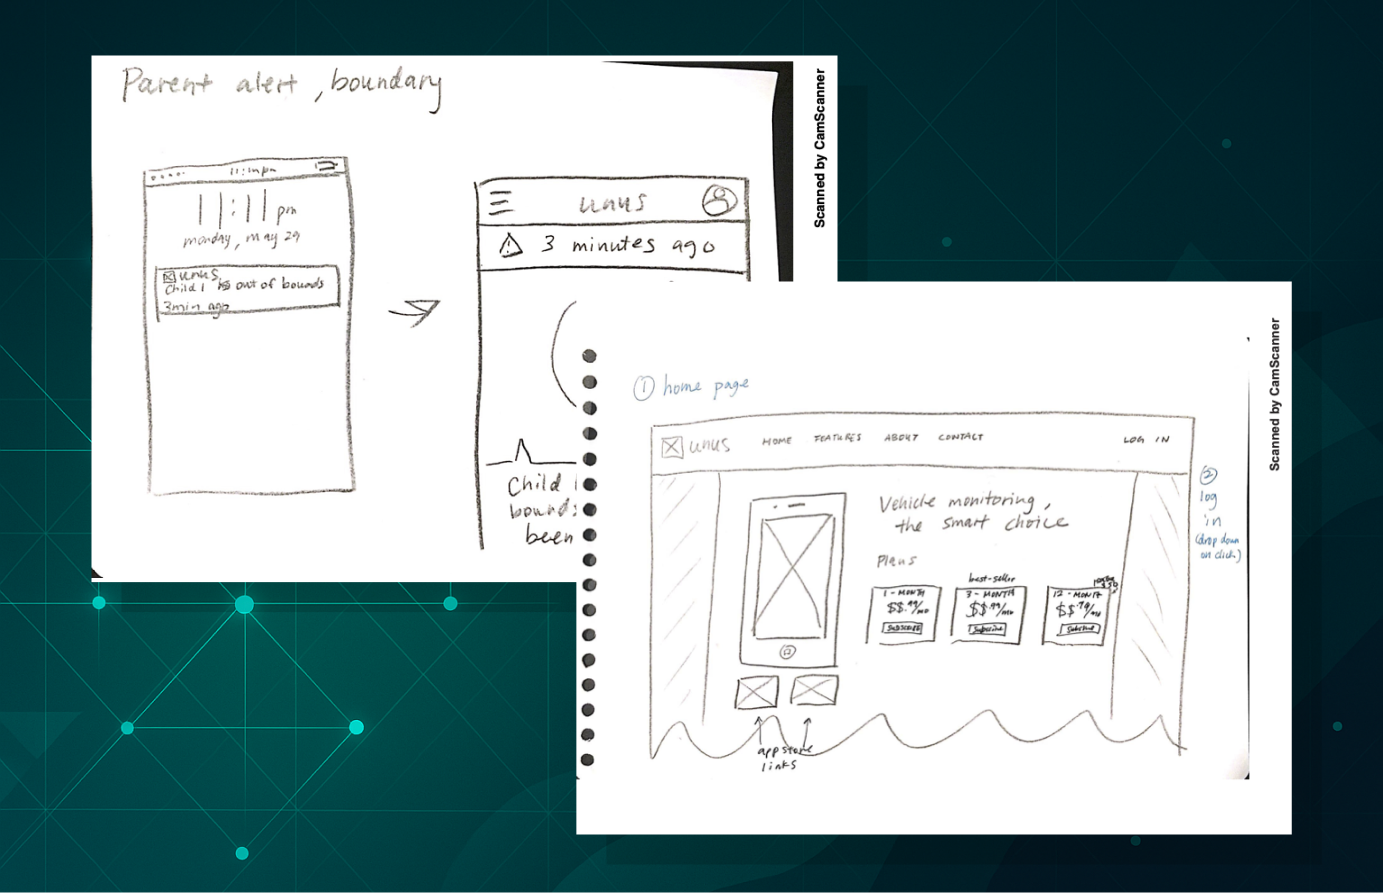 Parent alert, boundary
11:11pm
11:11 pm
monday, may 29
unus
Child 1 is out of bounds
3min ago
unus
3 minutes ago
Child
bounds
been
Scanned by CamScanner
1 home page
unus HOME FEATURES ABOUT CONTACT LOG IN
Vehicle monitoring,
the smart choice
Plans
1-MONTH
$$.99/mo
SUBSCRIBE
best-seller
3-MONTH
$$.99/mo
Subscribe
12-MONTH
$$.79/mo
Subscribe
app store
links
2
log
in
(drop down
on click)
Scanned by CamScanner